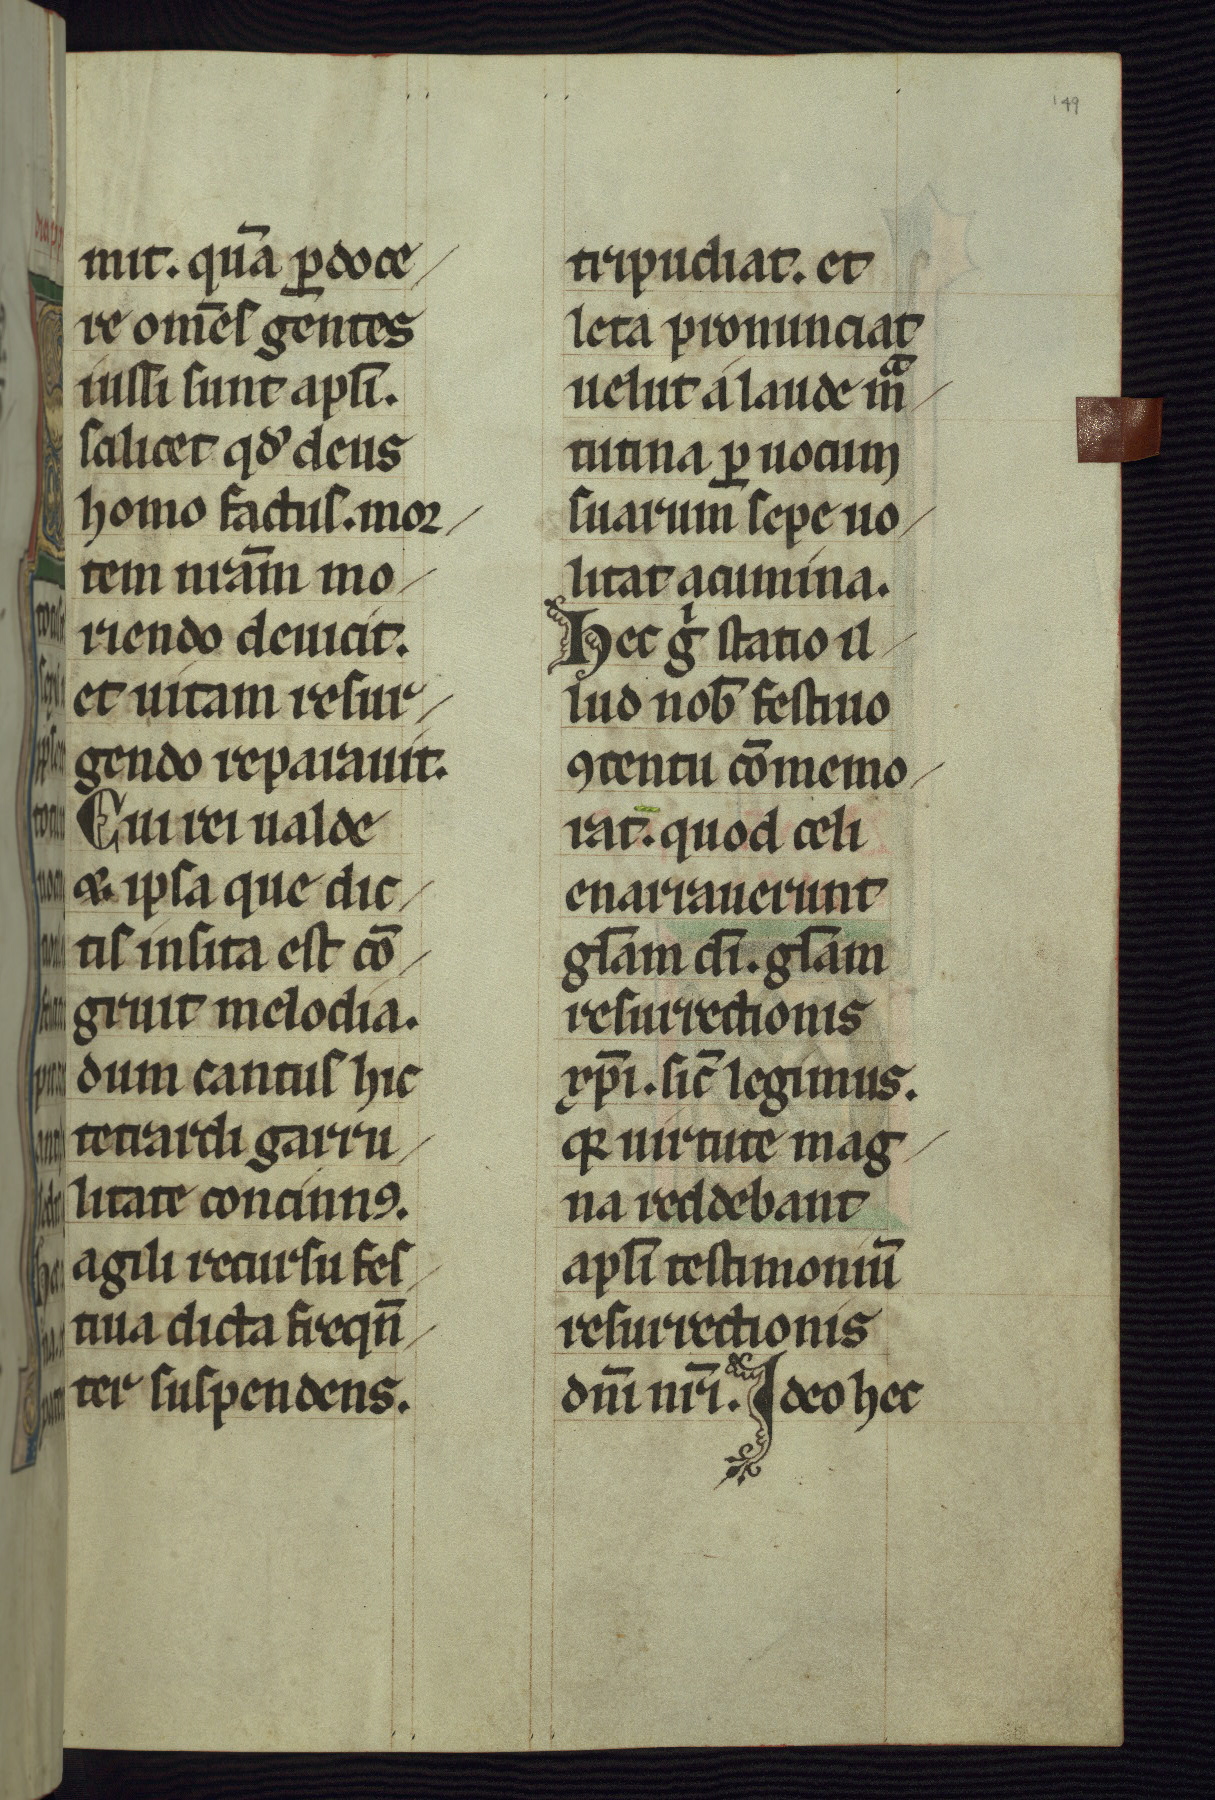 149
mit. qūa ꝑdoce
re om̄es gentes
iussi sunt apłi.
scilicet qđ deus
homo factus. mor
tem nrām mo
riendo deuicit.
et uitam resur
gendo reparauit.
Cui rei ualde
& ipsa que dic
tis insita est cō
gruit melodia.
dum cantus hic
tetrardi garru
litate concinnꝰ.
agili recursu fes
tiua dicta freqn̄
ter suspendens.
tripudiat. et
leta pronunciat
uelut a laude ma
tutina ꝑ uocum
suarum sepe uo
litat acumina.
Hec gͥ statio il
lud nob̄ festiuo
ꝯtentu cōmemo
rat. quod celi
enarrauerunt
głam dī. głam
resurrectionis
xp̄i. sic̄ legimus.
qꝛ uirtute mag
na reddebant
apłi testimoniū
resurrectionis
dn̄i nr̄i. Ideo hec